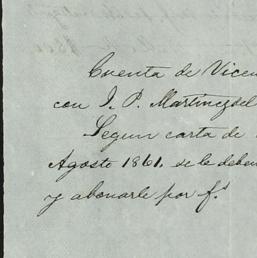 Cuenta de Vicen
con J. P. Martinez del
Segun carta de
Agosto 1861. se le deben
y abonarle por f.s